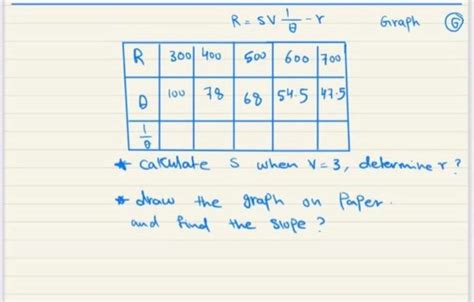 R = SV 1/θ - r Graph G
R 300 400 500 600 700
θ 100 78 68 54.5 47.5
1/θ
* calculate S when V = 3, determine r ?
* draw the graph on Paper.
and find the slope ?